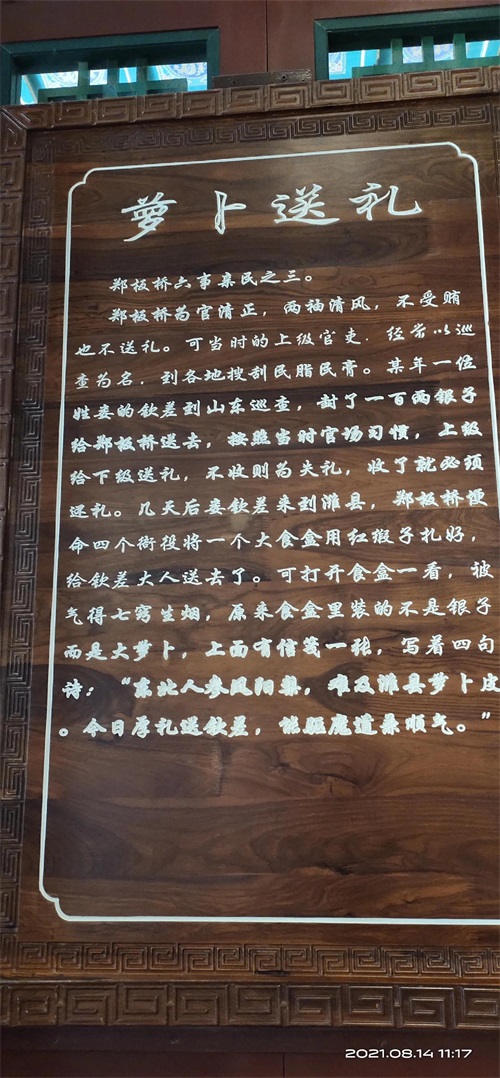 萝卜送礼
郑板桥六事亲民之三。
郑板桥为官清正，两袖清风，不受贿
也不送礼。可当时的上级官吏．经常以巡
查为名．到各地搜刮民脂民膏。某年一位
姓娄的钦差到山东巡查，封了一百两银子
给郑板桥送去，按照当时官场习惯，上级
给下级送礼，不收则为失礼，收了就必须
还礼。几天后娄钦差来到潍县，郑板桥便
命四个衙役将一个大食盒用红缎子扎好，
给钦差大人送去了。可打开食盒一看，被
气得七窍生烟，原来食盒里装的不是银子
而是大萝卜，上面有信笺一张，写着四句
诗：“东北人参凤阳梨，难及潍县萝卜皮
。今日厚礼送钦差，能驱魔道兼顺气。”
2021.08.14 11:17